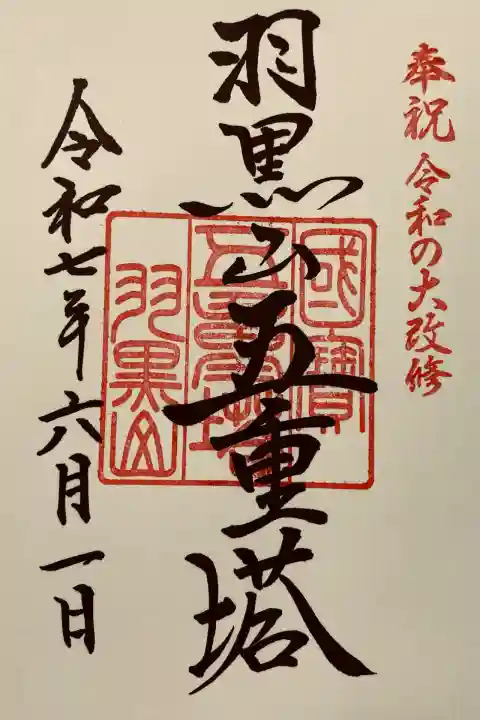 奉祝 令和の大改修
羽黒山五重塔
國寶
五重塔
羽黒山
令和七年六月一日